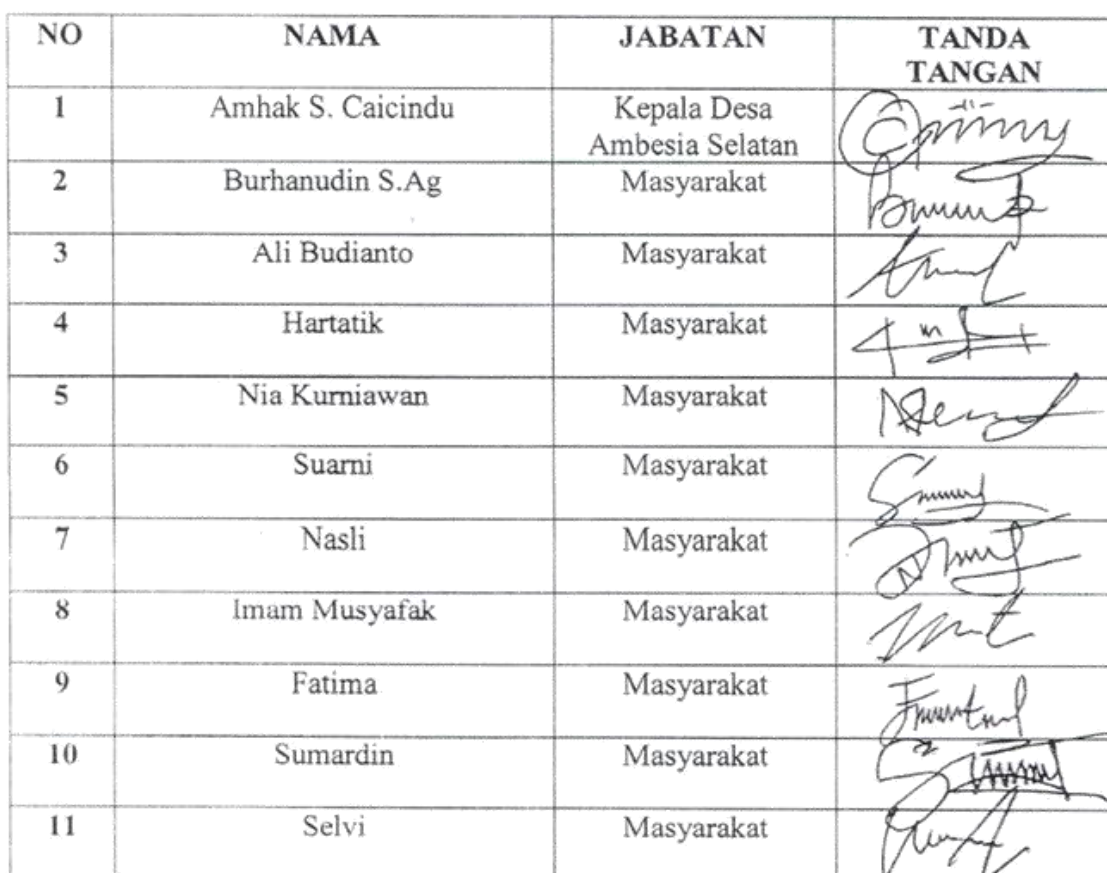 NO NAMA JABATAN TANDA TANGAN
1 Amhak S. Caicindu Kepala Desa Ambesia Selatan
2 Burhanudin S.Ag Masyarakat
3 Ali Budianto Masyarakat
4 Hartatik Masyarakat
5 Nia Kurniawan Masyarakat
6 Suarni Masyarakat
7 Nasli Masyarakat
8 Imam Musyafak Masyarakat
9 Fatima Masyarakat
10 Sumardin Masyarakat
11 Selvi Masyarakat